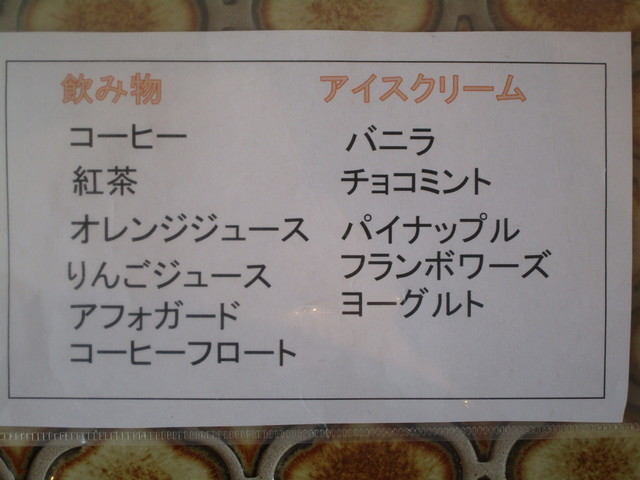 飲み物
コーヒー
紅茶
オレンジジュース
りんごジュース
アフォガード
コーヒーフロート
アイスクリーム
バニラ
チョコミント
パイナップル
フランボワーズ
ヨーグルト